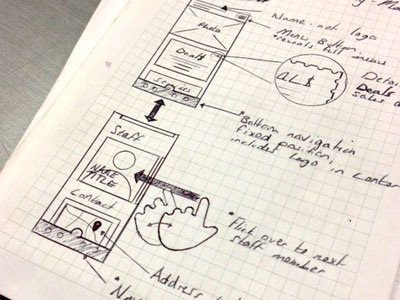 Name - not logo
Menu Button,
reveals full menu
Photo
Deals
Services
ALS
Deals
sales
*Bottom navigation
fixed position,
includes logo in
Staff
NAME
TITLE
Contact
*Flick over to next
staff member
Address